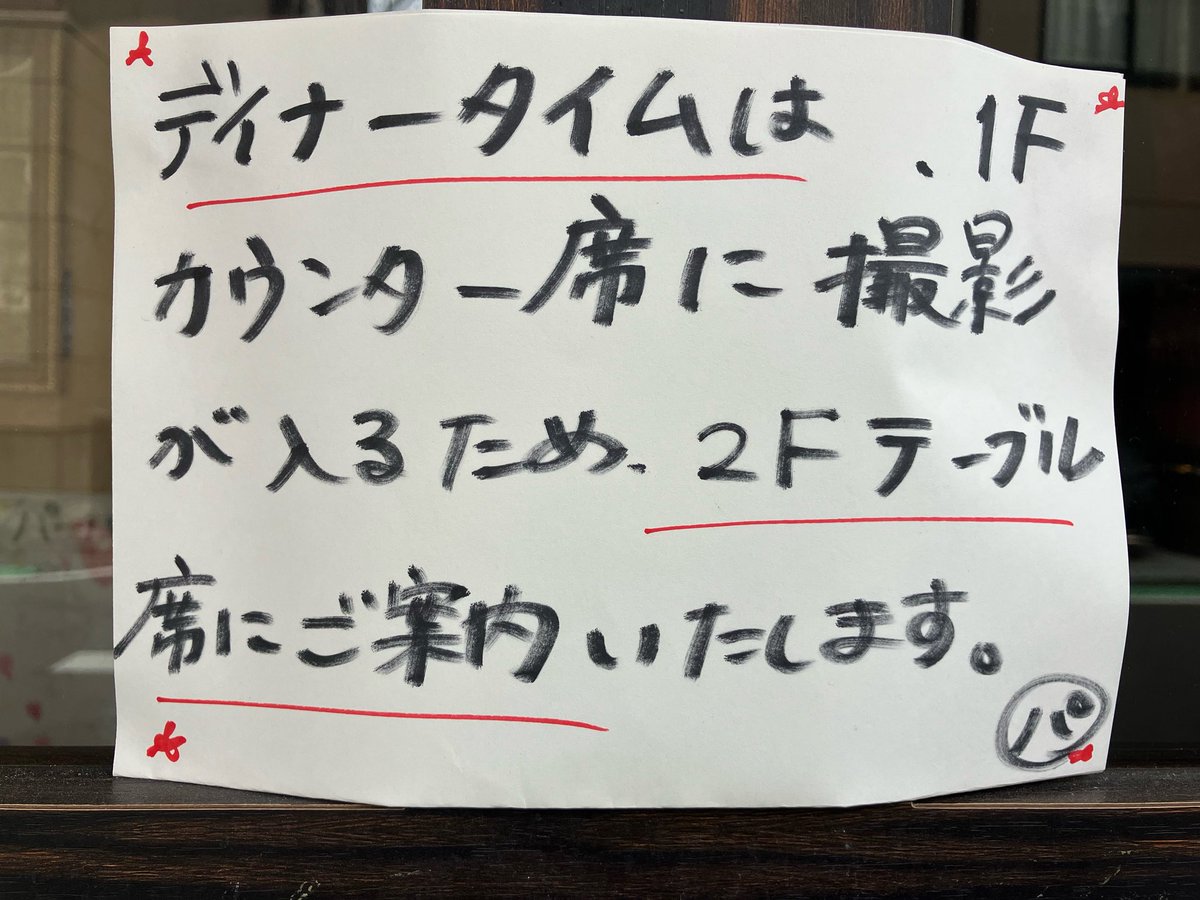 ディナータイムは、1F
カウンター席に撮影
が入るため、2Fテーブル
席にご案内いたします。
パ